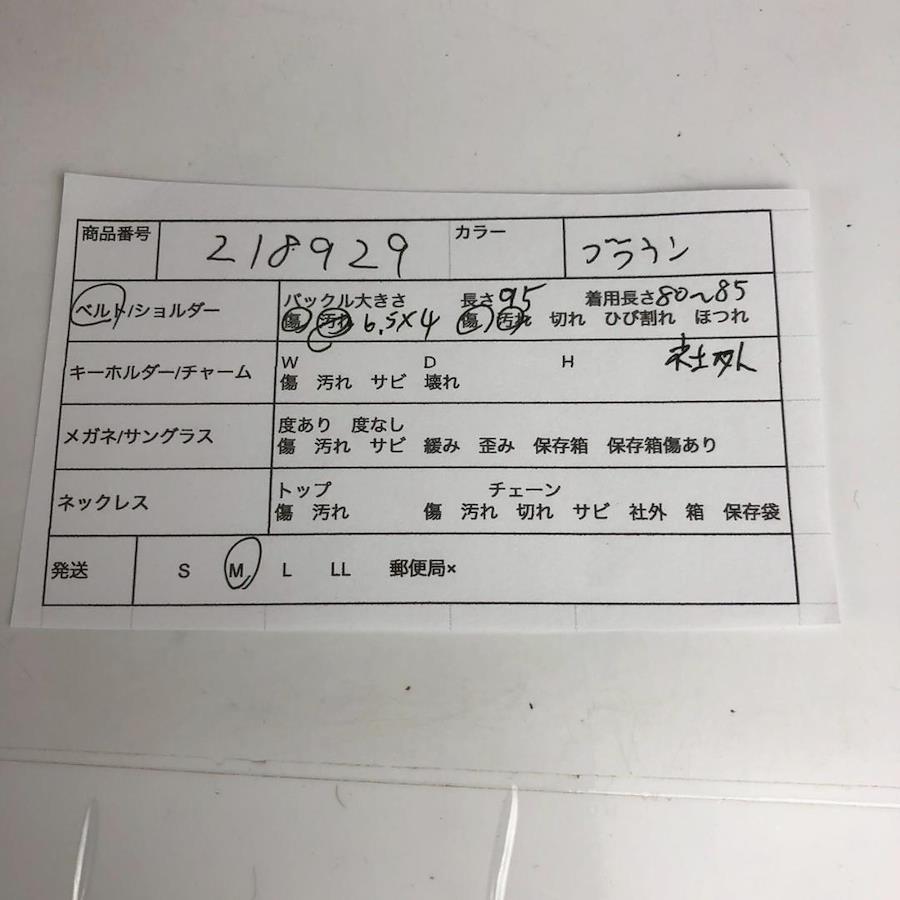 商品番号 218929 カラー ブラウン
ベルト/ショルダー バックル大きさ 長さ95 着用長さ80~85
傷 汚れ 6.5×4 傷 汚れ 切れ ひび割れ ほつれ
社外
キーホルダー/チャーム W D H
傷 汚れ サビ 壊れ
メガネ/サングラス 度あり 度なし
傷 汚れ サビ 緩み 歪み 保存箱 保存箱傷あり
ネックレス トップ チェーン
傷 汚れ 傷 汚れ 切れ サビ 社外 箱 保存袋
発送 S M L LL 郵便局×